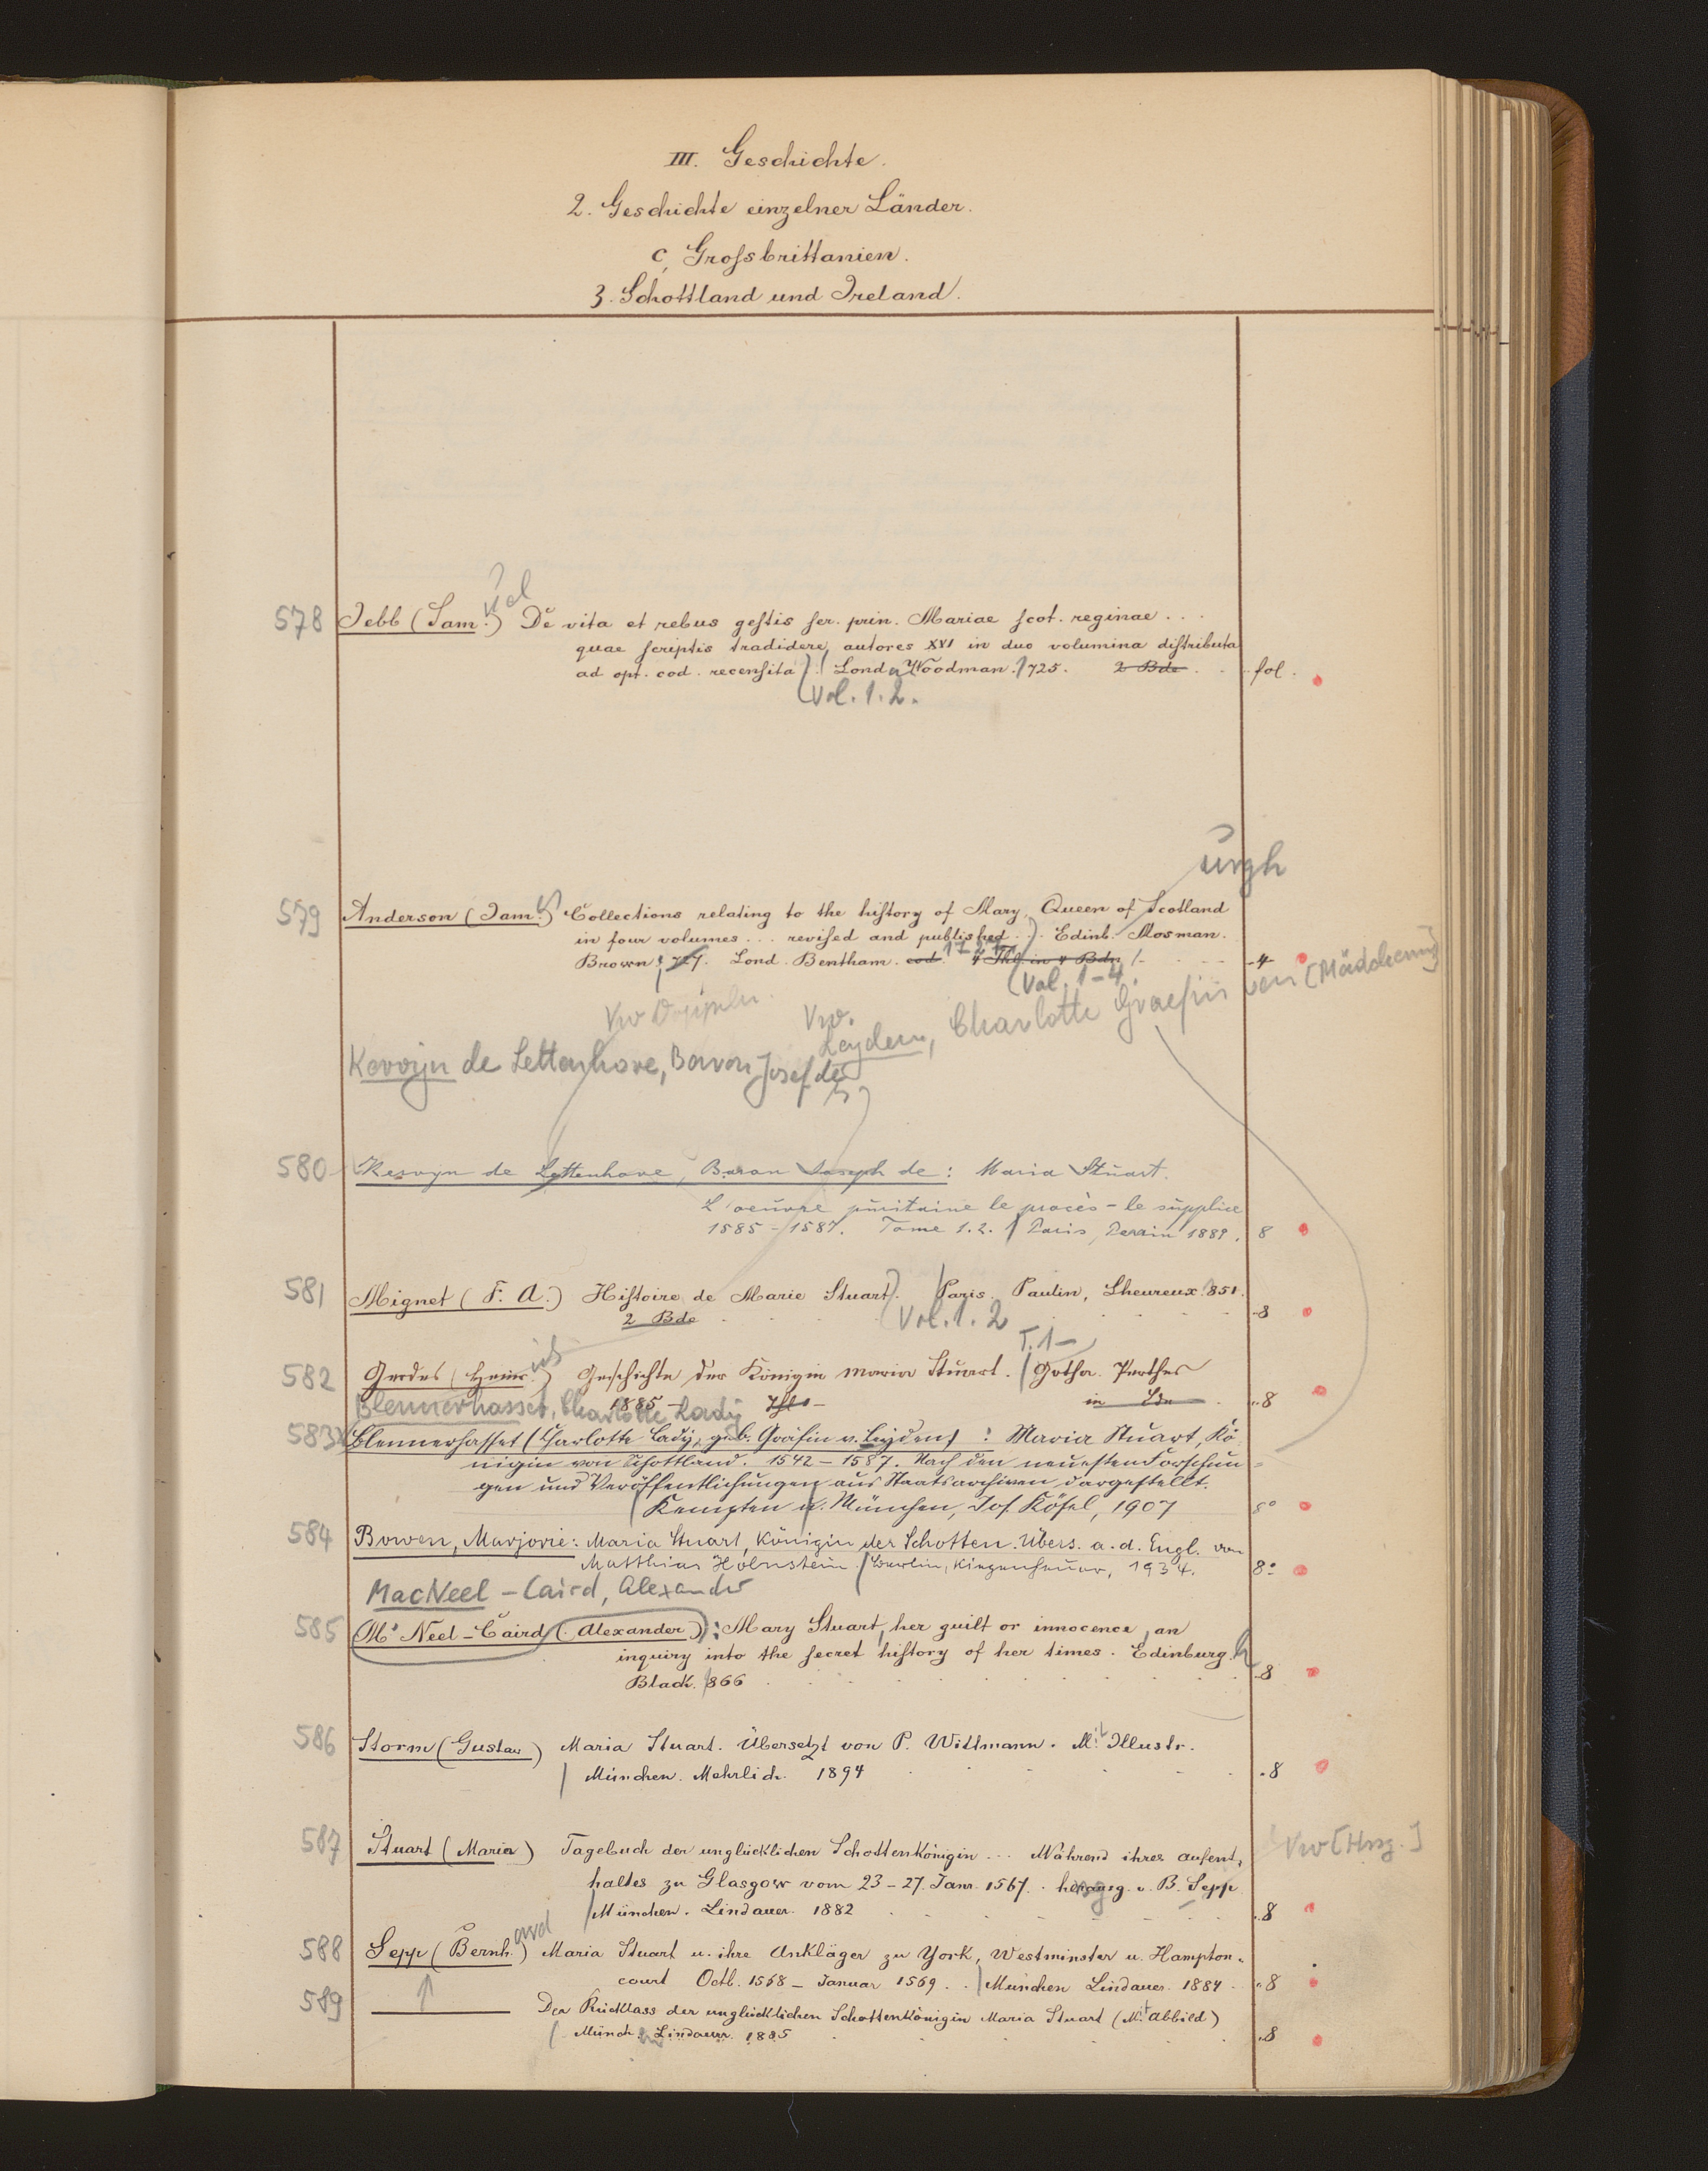 III. Geschichte.
2. Geschichte einzelner Länder.
c, Grossbrittanien.
3. Schottland und Ireland.
uel
578 Jebb (Sam.) De vita et rebus gestis ser. prin. Mariae scot. reginae . . .
quae scriptis tradidere autores XVI in duo volumina distributa
ad opt. cod. recensita). Lond Woodman. 1725. 2 Bde . . fol.
(Vol. 1. 2.
urgh
579 Anderson (Jam.) Collections relating to the history of Mary, Queen of Scotland
in four volumes . . . revised and published . . . Edinb. Mosman.
Brown 727. Lond. Bentham. eod. 4 Thl in 4 Bdn - 4
(Vol. 1-4
Vw. Leyden, Charlotte Graefin von [Mädchenn.]
Kervijn de Lettenhove, Baron Josef de
580 Kervyn de Lettenhove, Baron Joseph de: Maria Stuart.
L'oeuvre puritaine le procès - le supplice
1585 - 1587. Tome 1. 2. Paris, Perrin 1889. 8
581 Mignet (F. A.) Histoire de Marie Stuart). Paris. Paulin, Lheureux. 851.
2 Bde (Vol. 1. 2 8
T. 1-
582 Gerdes (Heinr.) Geschichte der Königin Maria Stuart. Gotha. Perthes
1885 - Thl - in Bdn . 8
Blennerhasset, Charlotte Lady
583 Blennerhasset (Charlotte Lady, geb. Gräfin v. Leyden) : Maria Stuart, Kö-
nigin von Schottland. 1542 - 1587. Nach den neuesten Forschun-
gen und Veröffentlichungen aus Staatsarchiven dargestellt.
Kempten u. München, Jos. Kösel, 1907 8°
584 Bowen, Marjorie: Maria Stuart, Königin der Schotten. Übers. a. d. Engl. von
Matthias Holnstein. Berlin, Kiepenheuer, 1934. 8°
MacNeel - Caird, Alexander
585 Mc Neel - Caird (Alexander): Mary Stuart, her guilt or innocence, an
inquiry into the secret history of her times. Edinburg.h
Black. 866 8
586 Storm (Gustav) Maria Stuart. Übersetzt von P. Wittmann. Mit Illustr.
München. Mehrlich. 1894 8
587 Stuart (Maria) Tagebuch der unglücklichen Schottenkönigin . . . Während ihres aufent-
Vw [Hrsg.]
haltes zu Glasgow vom 23 - 27. Janr. 1567. . herausg. v. B. Sepp
München. Lindauer. 1882 8
ard
588 Sepp (Bernh.) Maria Stuart u. ihre Ankläger zu York, Westminster u. Hampton-
court Octb. 1568 - Januar 1569. . München Lindauer. 1884. 8
589 ——— Der Rücklass der unglücklichen Schottenkönigin Maria Stuart (Mit Abbild)
Münch. Lindauer. 1885 8